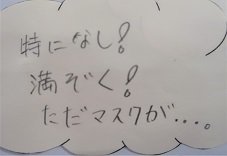 特になし!
満ぞく!
ただマスクが....。